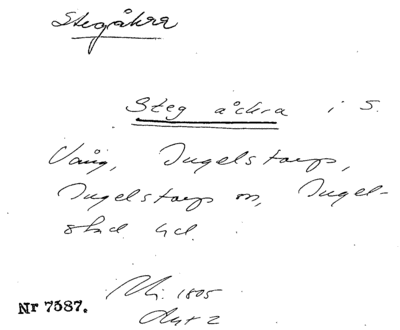 Stegåkra
Steg åckra i S.
Vång, Ingelstorps,
Ingelstorps sn, Ingel-
stad hd.
1805
Akt 2
Nr 7587.